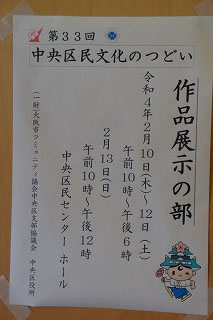 第33回
中央区民文化のつどい
作品展示の部
令和4年2月10日(木)~12日(土)
午前10時~午後6時
2月13日(日)
午前10時~午後12時
中央区民センター ホール
(一財)大阪市コミュニティ協会中央区支部協議会 中央区役所